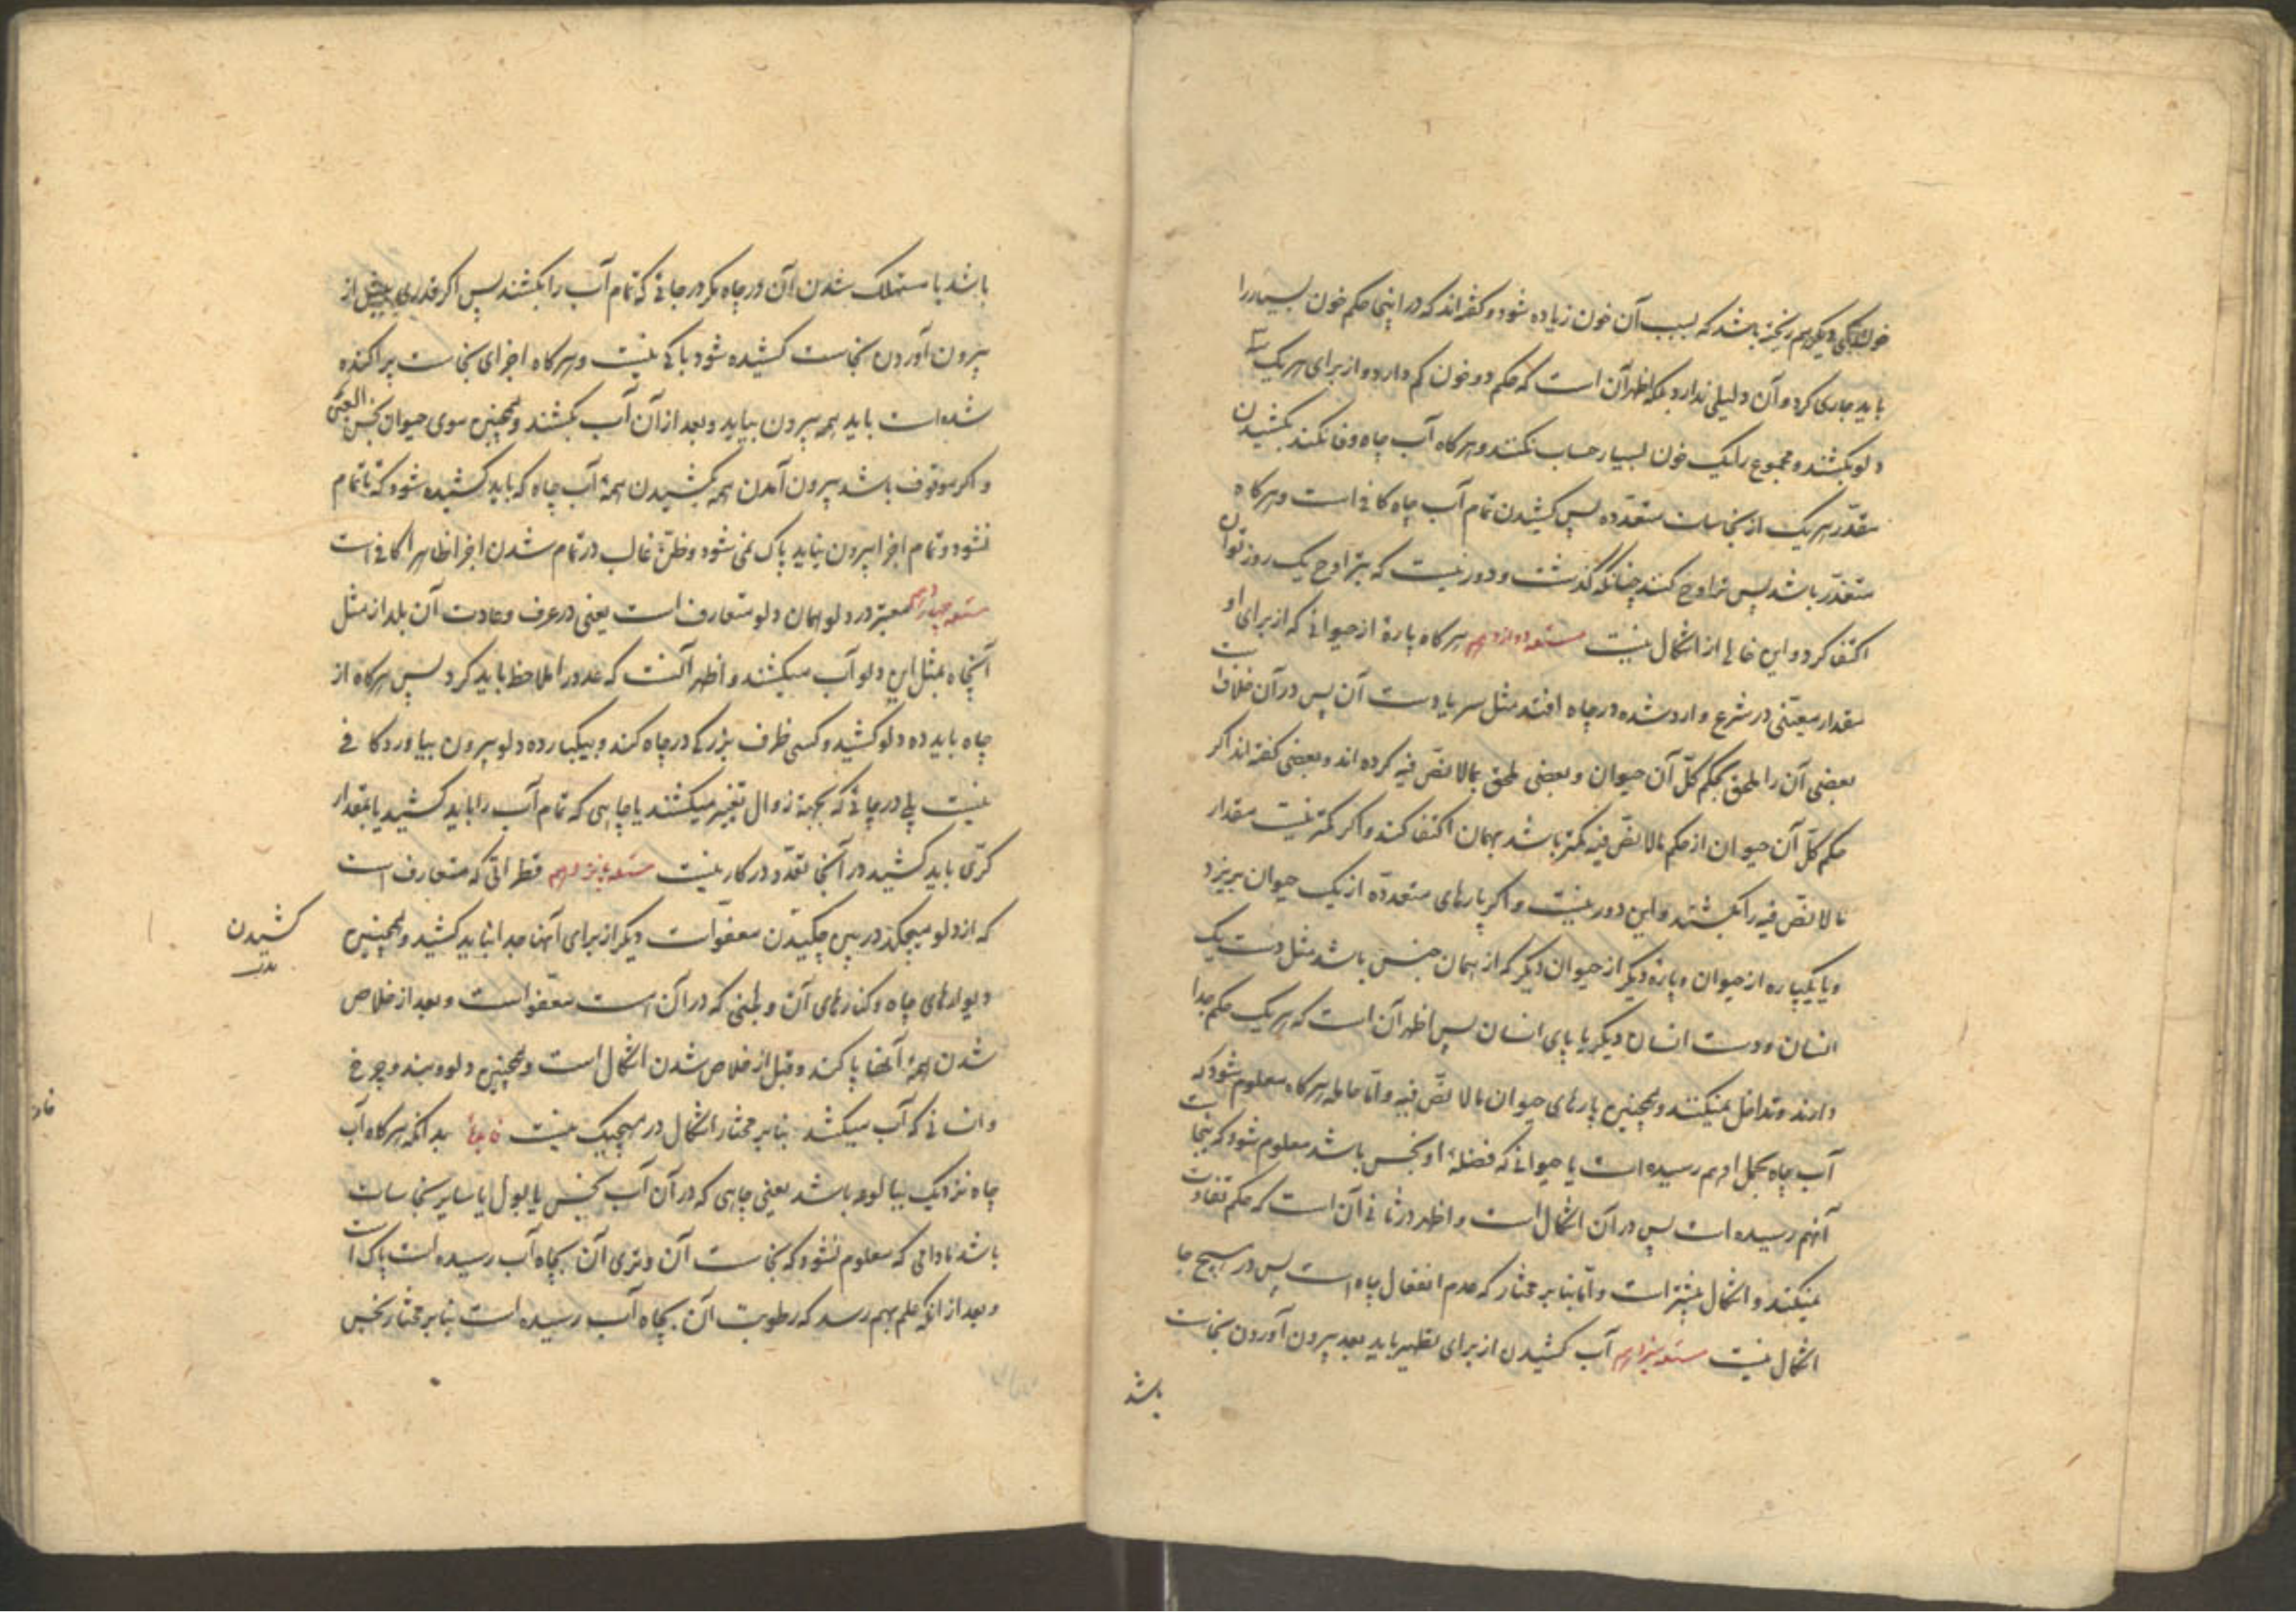 خون دیگری هم ریخته باشد که بسبب آن خون زیاده شود و گفته‌اند که در اینجا حکم خون بسیار را
باید جاری کرد و آن دلیلی ندارد بلکه اظهر آن است که حکم دو خون کم دارد و از برای هر یک
دلو بکشند و مجموع را یک خون بسیار حساب نکنند و هر کاه آب چاه وفا نکند بکشیدن
مقدّر هر یک از نجاسات متعدّده پس کشیدن تمام آب چاه کافی است و هر کاه
متعذّر باشد پس تراوح کنند چنانکه گذشت و دور نیست که بتراوح یک روز توان
اکتفا کرد و این خالی از اشکال نیست مسئله دوازدهم هر کاه پارهٔ از حیوانی که از برای او
مقدار معیّنی در شرع وارد شده در چاه افتد مثل سر یا دست آن پس در آن خلاف است
بعضی آن را ملحق بحکم کلّ آن حیوان و بعضی ملحق بمالا نصّ فیه کرده اند و بعضی گفته اند اگر
حکم کلّ آن حیوان از حکم مالا نصّ فیه کمتر باشد بهمان اکتفا کنند و اگر کمتر نیست مقدار
مالا نصّ فیه را بکشند و این دور نیست و اگر پارهای متعدده از یک حیوان بریزد
و یا یکپاره از حیوان و پارهٔ دیگر از حیوان دیگر که از همان جنس باشد مثل دست یک
انسان و دست انسان دیگر یا پای انسان پس اظهر آن است که هر یک حکم جدا
دارند و تداخل نمیکنند و همچنین پارهای حیوان مالا نصّ فیه و امّا حامله هر کاه معلوم شود که
آب چاه بحمل او هم رسیده است یا حیوانی که فضلهٔ او نجس باشد معلوم شود که نجاست
آنهم رسیده است پس در آن اشکال است و اظهر در ثانی آن است که حکم تفاوت
نمیکند و اشکال بیشتر است و امّا بنابر مختار که عدم انفعال چاه است پس در هیچ جا
اشکال نیست مسئله سیزدهم آب کشیدن از برای تطهیر باید بعد بیرون آوردن نجاست
باشد
باشد یا مستهلک شدن آن در چاه مگر در جائی که تمام آب را بکشند پس اگر قدری پیش از
بیرون آوردن نجاست کشیده شود باکی نیست و هر کاه اجزای نجاست پراکنده
شده است باید همه بیرون بیاید و بعد از آن آب بکشند و همچنین موی حیوان نجس العین
و اگر موقوف باشد بیرون آمدن همه بکشیدن همهٔ آب چاه که باید کشیده شود که تا تمام
نشود و تمام اجزا بیرون نیاید پاک نمی شود و ظنّ غالب در تمام شدن اجزا ظاهرا کافی است
مسئله چهاردهم معتبر در دلو همان دلو متعارف است یعنی در عرف و عادت آن بلد از مثل
آنچاه بمثل این دلو آب میکشند و اظهر آنست که عدد را ملاحظه باید کرد پس هر کاه از
چاه باید ده دلو کشید و کسی ظرف بزرکی در چاه کند و بیکبار ده دلو بیرون بیاورد کافی
نیست بلی در جائی که بجهة زوال تغییر میکشند یا چاهی که تمام آب را باید کشید یا بمقدار
کرّی باید کشید در آنجا تعدّد در کار نیست مسئله پانزدهم قطراتی که متعارف است
که از دلو میچکد در پس چکیدن معفوّاست دیگر از برای آنها جدا نباید کشید و همچنین
کشیدن
دیوارهای چاه و کنارهای آن و طینی که در آن است معفوّاست و بعد از خلاص
شدن همهٔ آنها پاکند و قبل از خلاص شدن اشکال است و همچنین دلو و بند و چرخ
و انسانی که آب میکشد بنابر مختار اشکال در هیچیک نیست فایدة بدانکه هر کاه آب
چاه نزدیک ببالوعه باشد یعنی چاهی که در آن آب نجس یا بول یا سایر نجاسات
باشد مادامی که معلوم نشود که نجاست آن و تری آن بچاه آب رسیده است پاک است
و بعد از انکه علم بهم رسد که رطوبت آن بچاه آب رسیده است بنابر مختار نجس